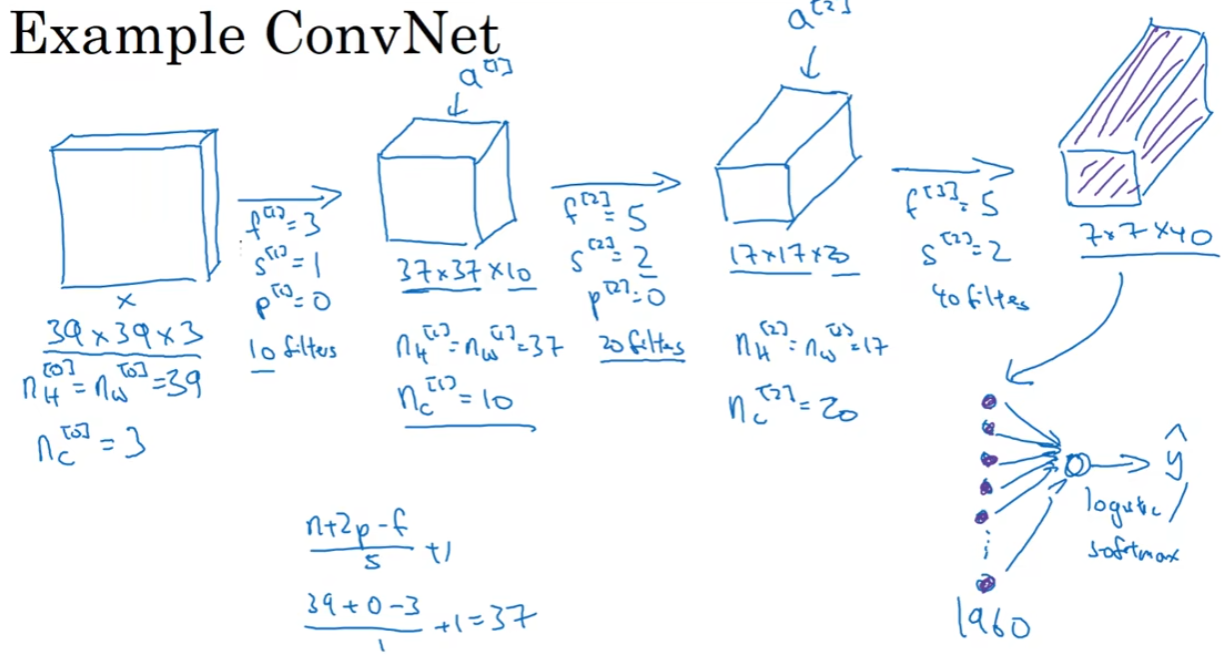 Example ConvNet
a^[1]
a^[2]
x
39 x 39 x 3
n_H^[0] = n_W^[0] = 39
n_C^[0] = 3
f^[1] = 3
s^[1] = 1
p^[1] = 0
10 filters
37 x 37 x 10
n_H^[1] = n_W^[1] = 37
n_C^[1] = 10
f^[2] = 5
s^[2] = 2
p^[2] = 0
20 filters
17 x 17 x 20
n_H^[2] = n_W^[2] = 17
n_C^[2] = 20
f^[3] = 5
s^[2] = 2
40 filters
7 x 7 x 40
1960
ŷ
logistic /
softmax
(n+2p-f)/s +1
(39+0-3)/1 +1 = 37